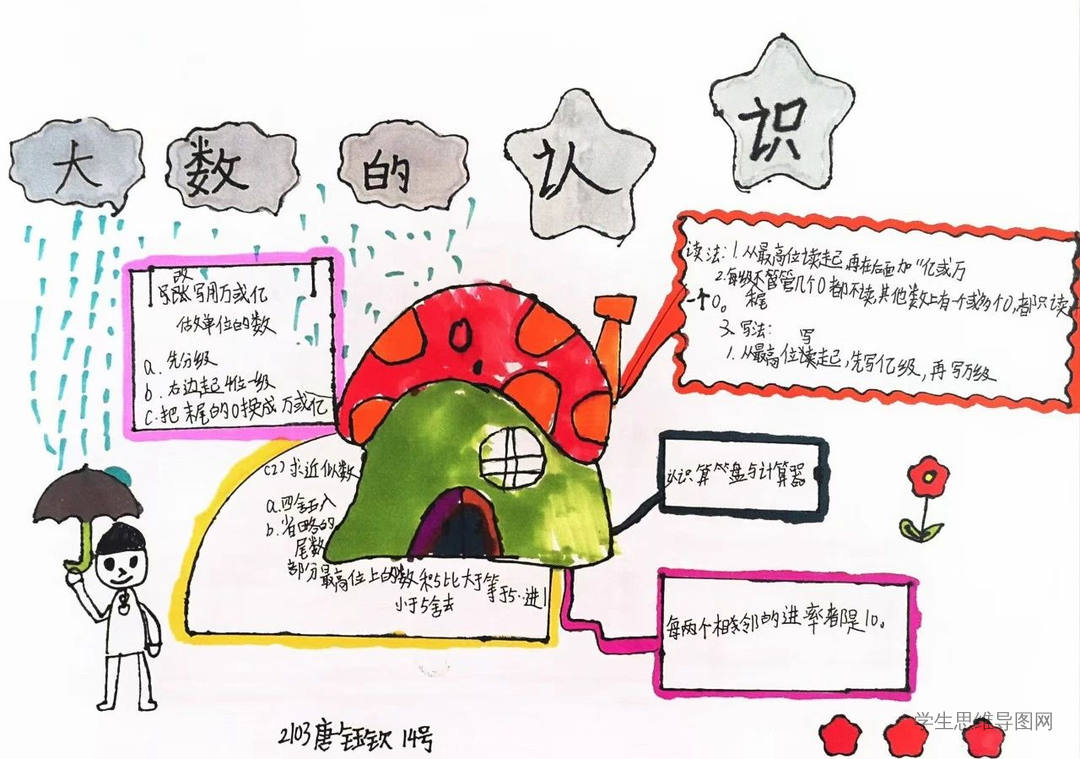 大数的认识
改写用万或亿
做单位的数
a. 先分级
b. 右边起4位一级
c. 把末尾的0换成万或亿
读法:1.从最高位读起再在后面加“亿或万
2.每级末尾不管几个0都不读,其他数上有一个或多个0,都只读
一个0。
3、写法:
1.从最高位写起,先写亿级,再写万级
(2)求近似数
a.四舍五入
b.省略的
尾数
部分最高位上的数和5比大于等于5··进1
小于5舍去
认识算盘与计算器
每两个相邻的进率都是10。
2103唐钰钦 14号
学生思维导图网